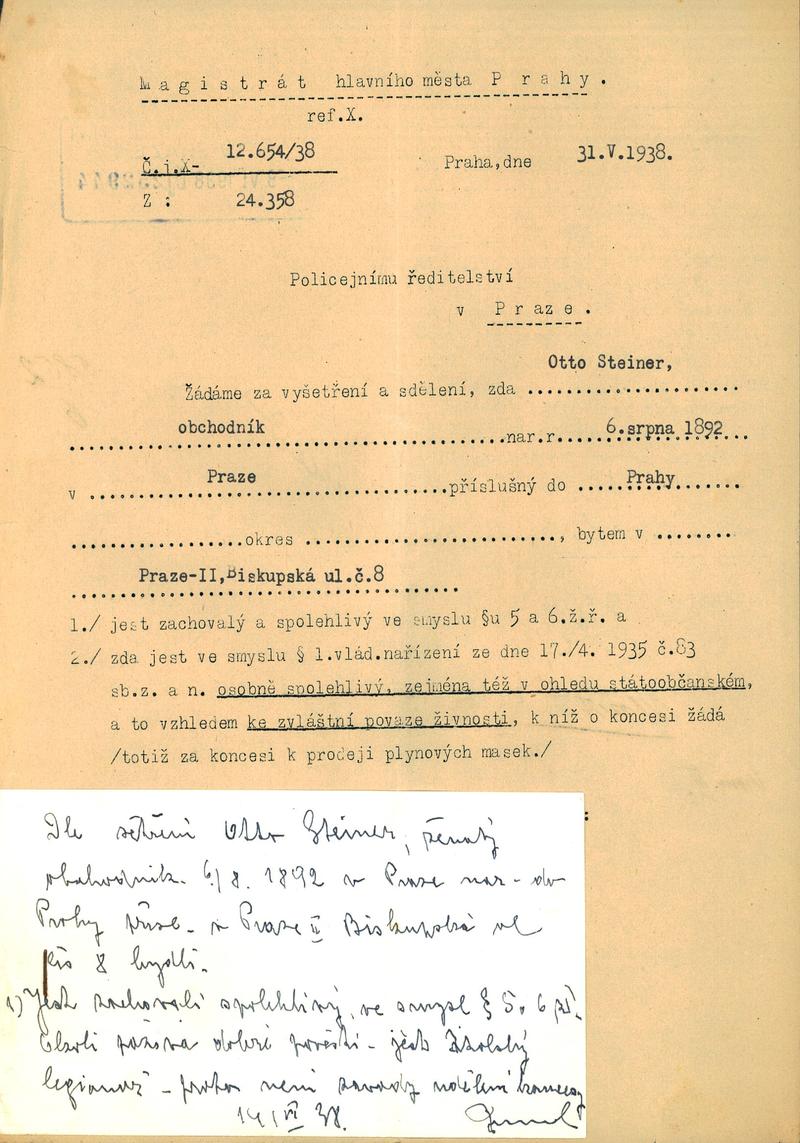 Magistrát hlavního města Prahy.
ref.X.
Č.j.X- 12.654/38
Praha,dne 31.V.1938.
Z : 24.358
Policejnímu ředitelství
v Praze.
Otto Steiner,
Žádáme za vyšetření a sdělení, zda ......................
obchodník ...nar.r... 6.srpna 1892
v ... Praze ...příslušný do ... Prahy
...okres ..., bytem v ...
Praze-II,Biskupská ul.č.8
1./ jest zachovalý a spolehlivý ve smyslu §u 5 a 6.ž.ř. a
2./ zda jest ve smyslu § 1.vlád.nařízení ze dne 17./4. 1935 č.83
sb.z. a n. osobně spolehlivý, zejména též v ohledu státoobčanském,
a to vzhledem ke zvláštní povaze živnosti, k níž o koncesi žádá
/totiž za koncesi k prodeji plynových masek./
Dle šetření Otto Steiner, ženatý
obchodník. 6/8. 1892 v Praze nar - do
Prahy přísl - v Praze II Biskupská ul
čís 8 bydlí.
1) Jest zachovalý spolehlivý ve smysl § 5. 6
dobré pověsti - jest
legionář - proto není udělení koncese
14/VI 38.